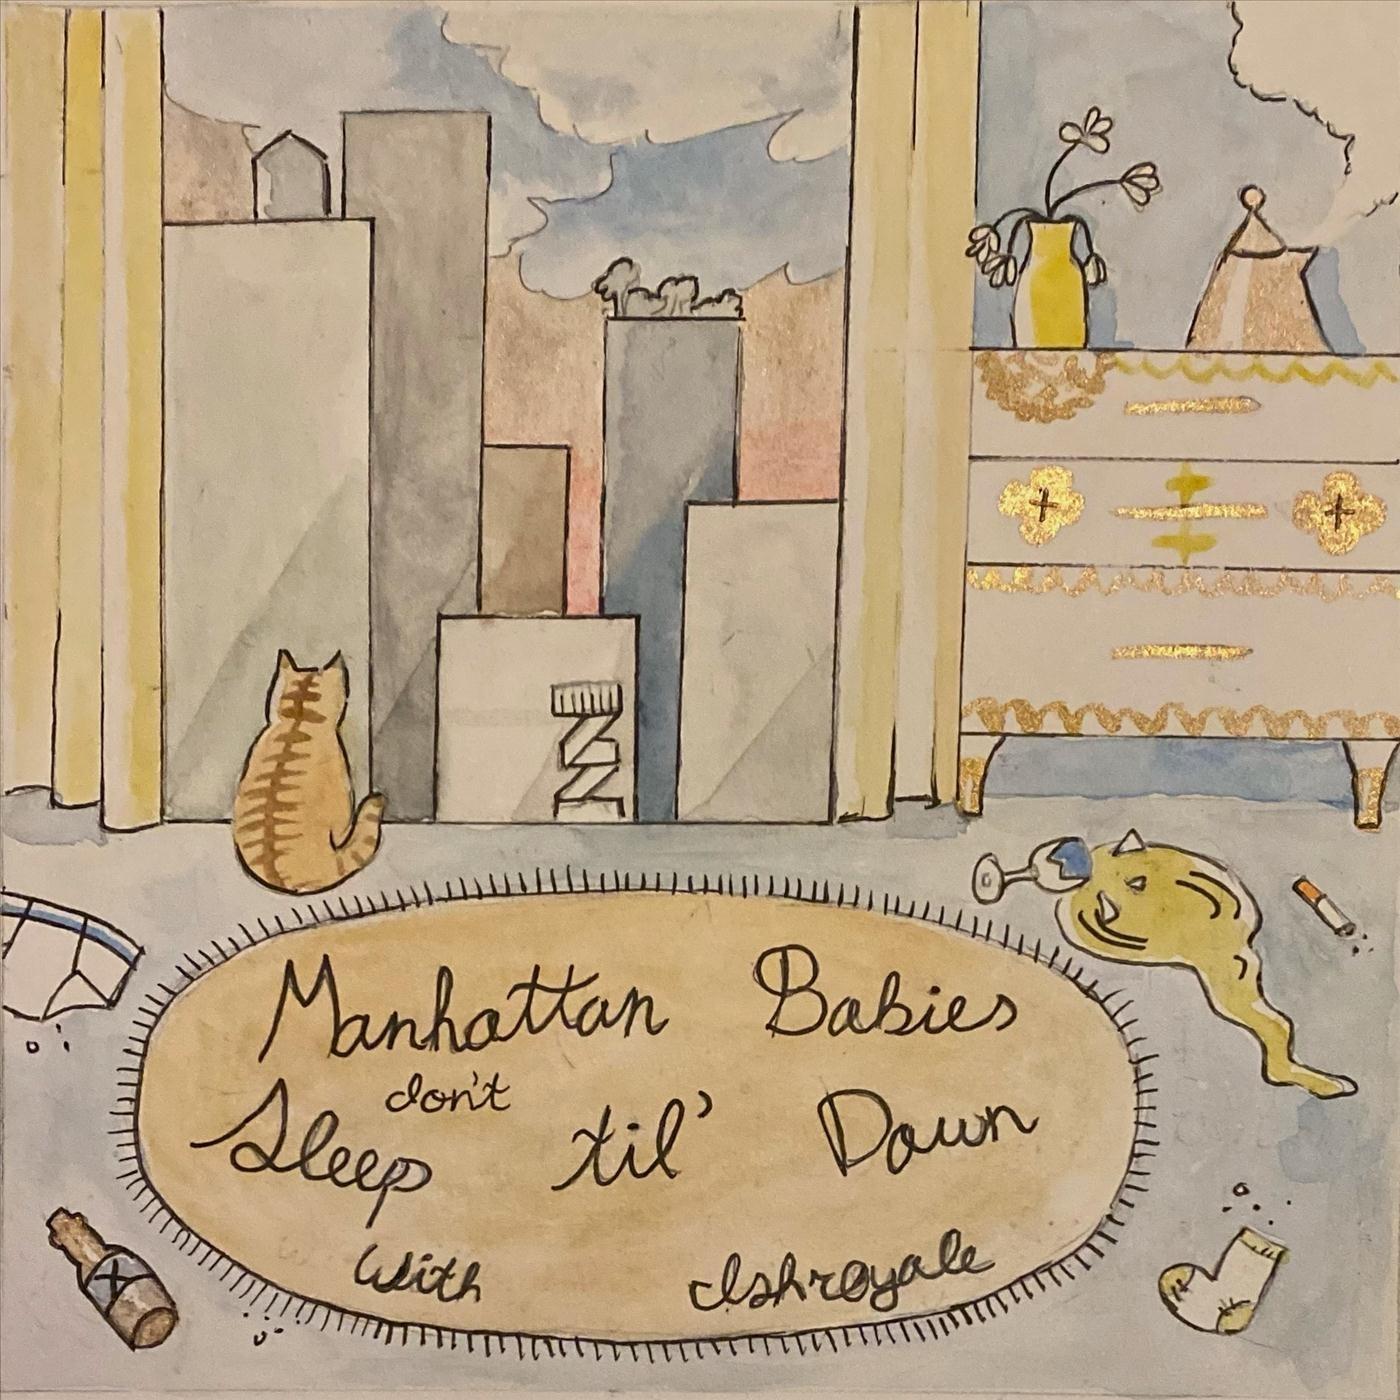 Manhattan Babies
don't
Sleep til' Dawn
with Ishroyale